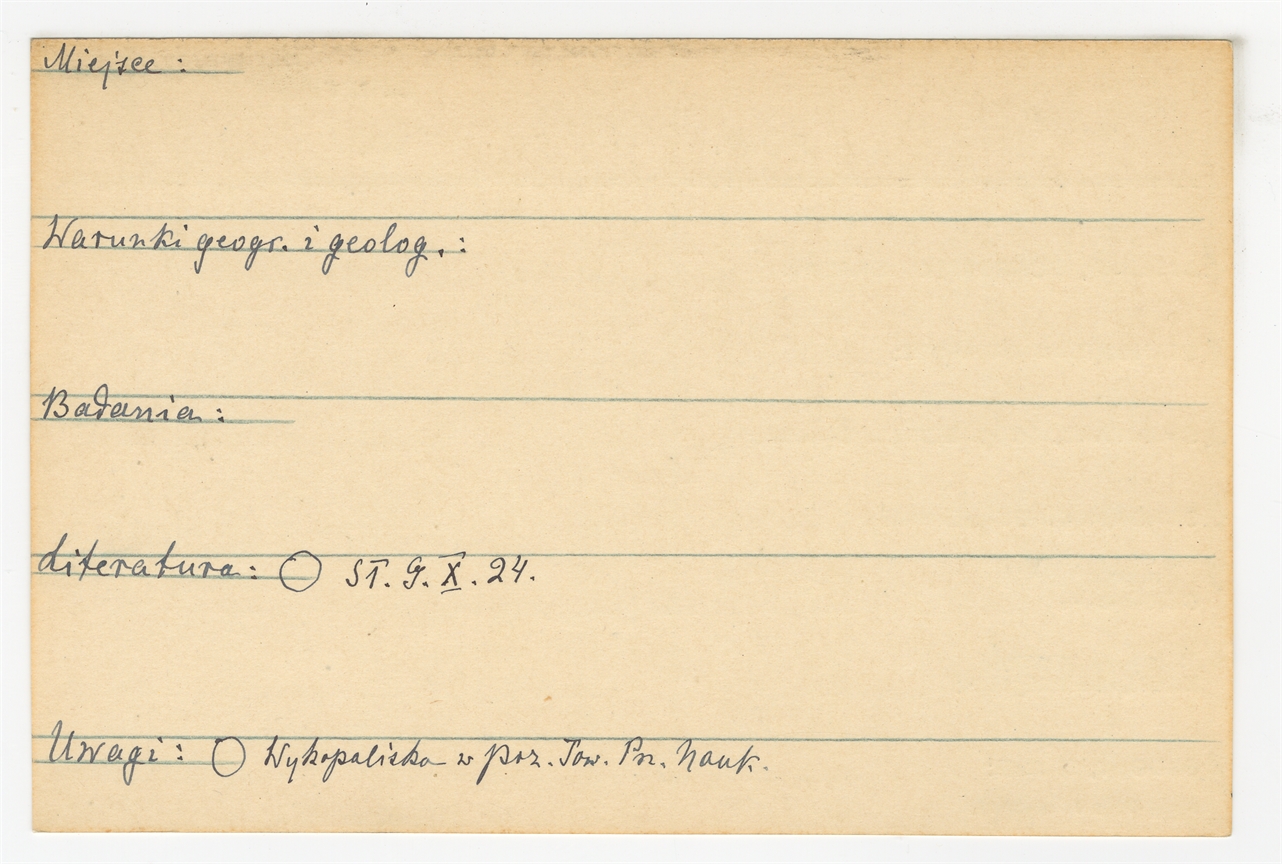 Miejsce :
Warunki geogr. i geolog. :
Badania :
Literatura : ○ ST. G. X. 24.
Uwagi : ○ Wykopaliska w poz. Tow. Prz. Nauk.